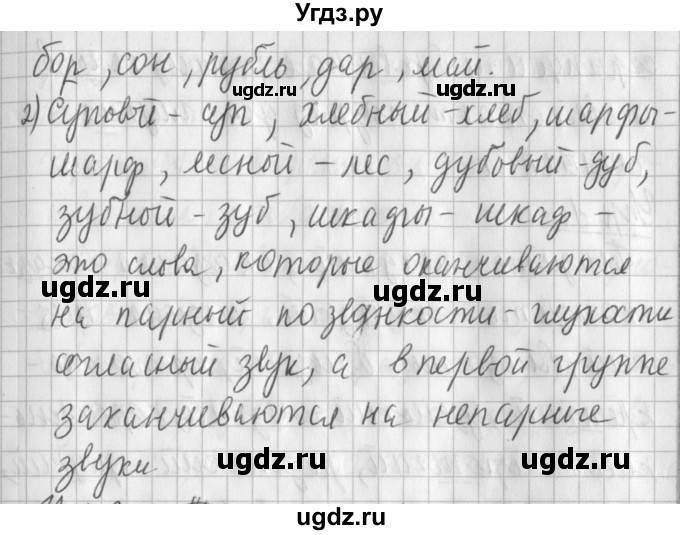 Угдз.ру
бор, сон, рубль, дар, май.
ugdz.ru
ugdz.ru
2) Суповой - суп, хлебный - хлеб, шарфы -
шарф, лесной - лес, дубовый - дуб,
зубной - зуб, шкафы - шкаф -
это слова, которые оканчиваются
ugdz.ru
ugdz.ru
на парный по звонкости - глухости
согласный звук, а в первой группе
заканчиваются на непарные
звуки
ugdz.ru
ugdz.ru
ugdz.ru